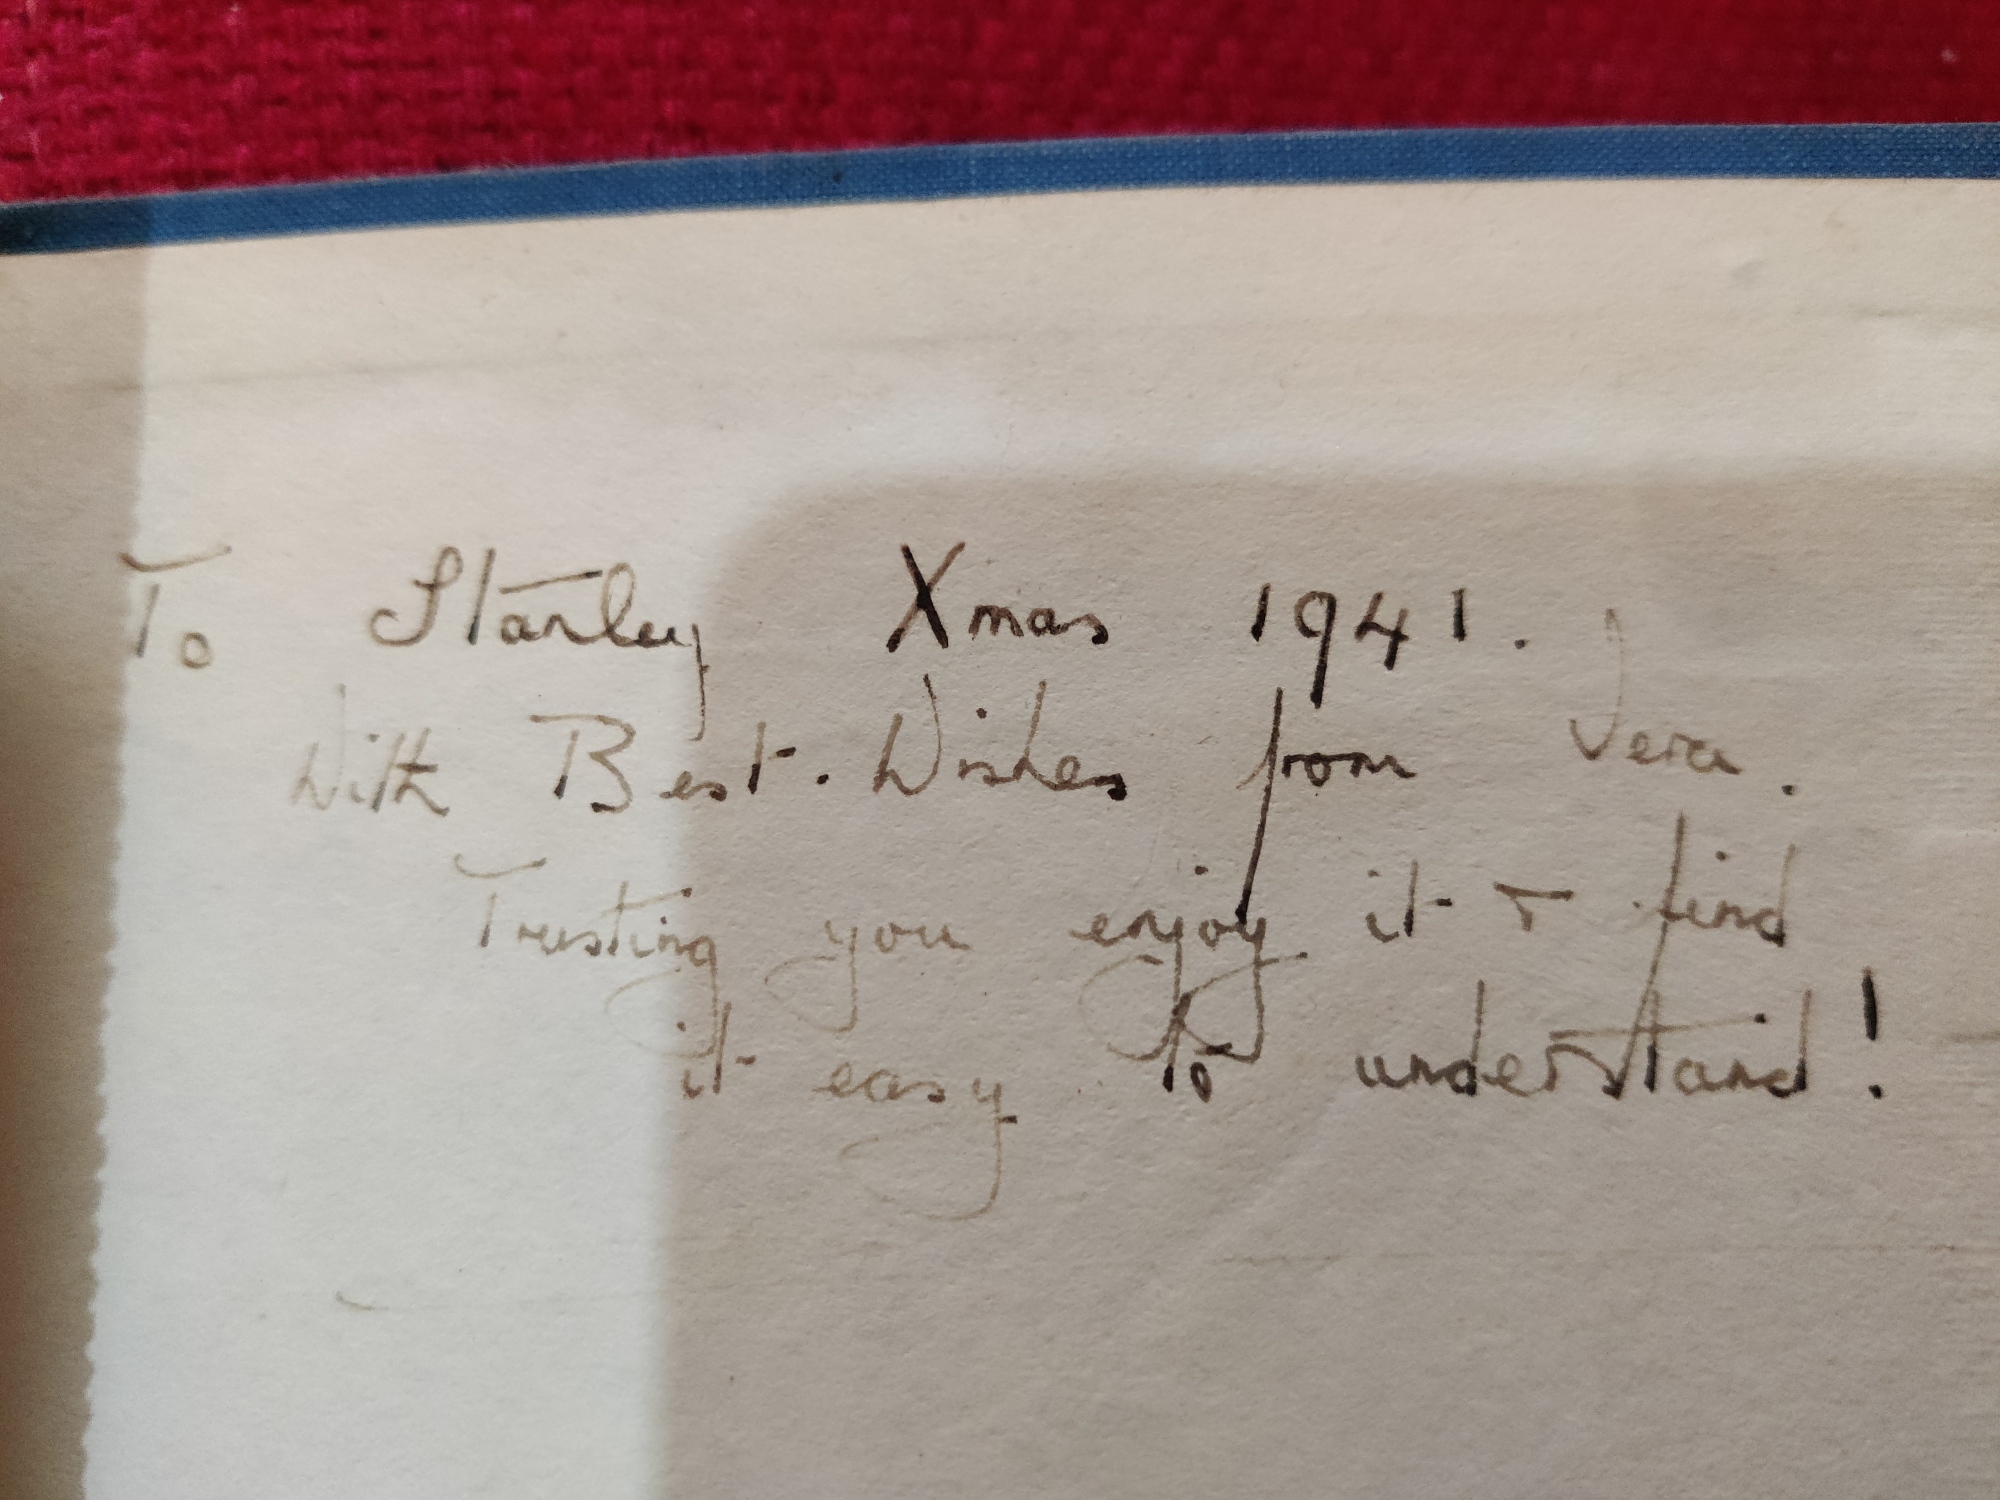 To Stanley Xmas 1941.
With Best. Wishes from Vera.
Trusting you enjoy it & find
it easy to understand!